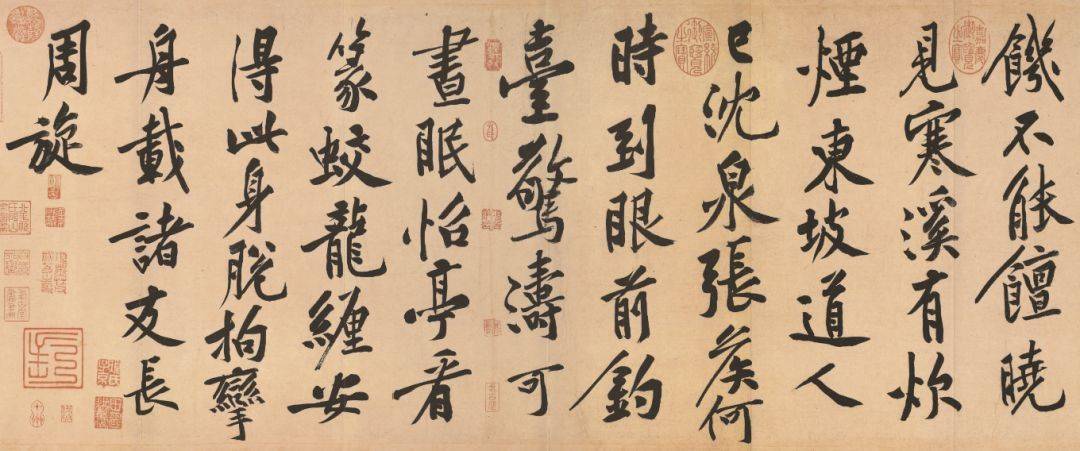 饑不能饘曉
見寒溪有炊
煙東坡道人
已沈泉張侯何
時到眼前釣
臺驚濤可
晝眠怡亭看
篆蛟龍纏安
得此身脫拘攣
舟載諸友長
周旋